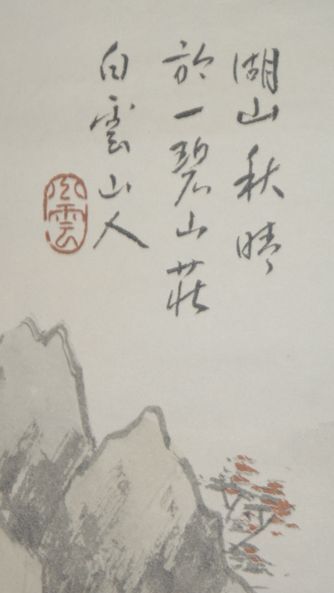 湖山秋晴
於一碧山莊
白雲山人
白雲